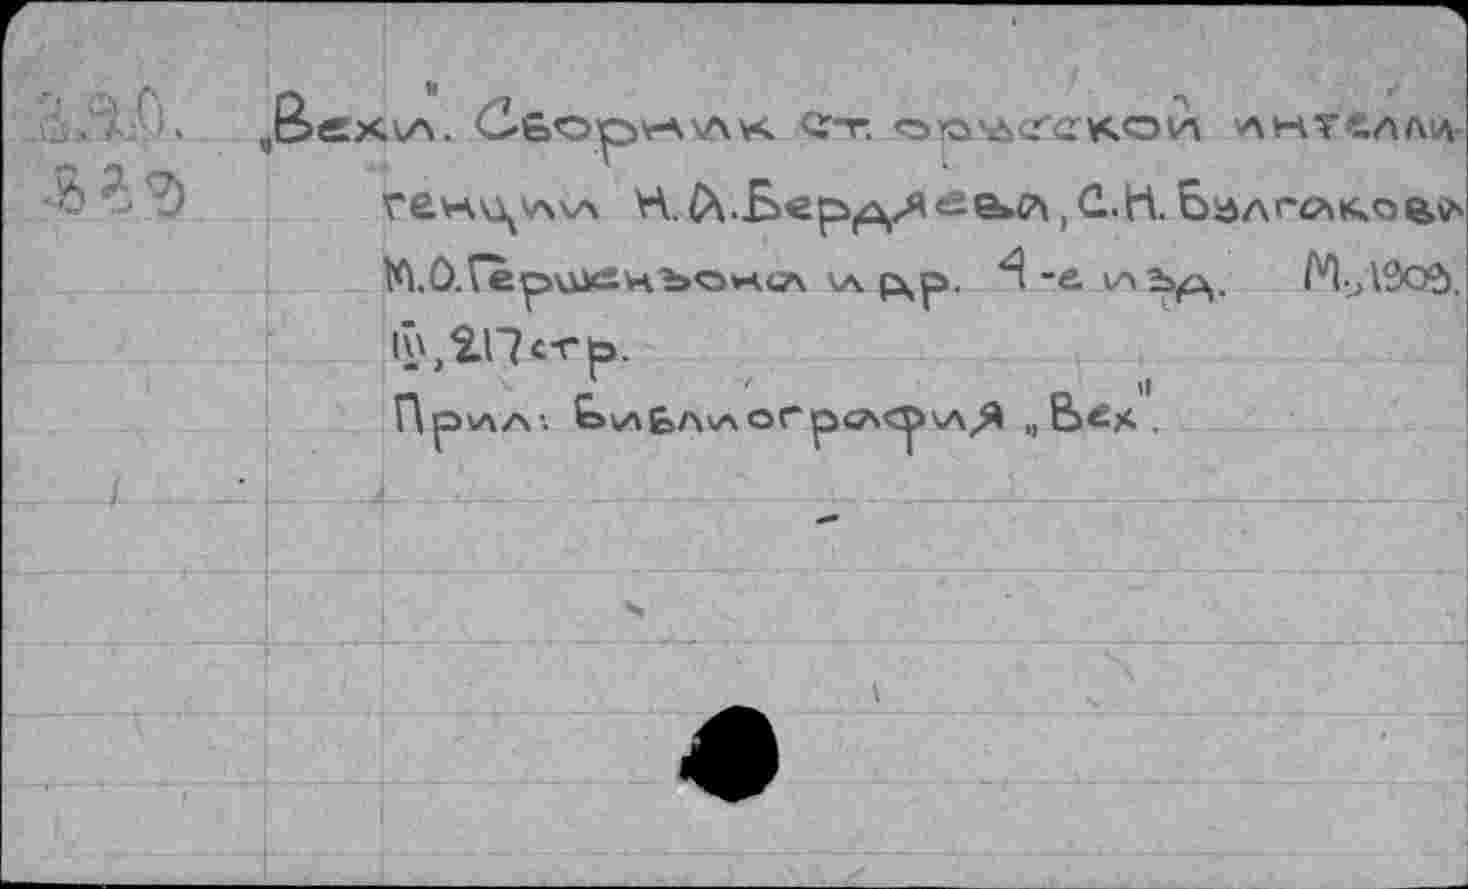 „Вехи". Сборник ст. о русской интелли-
генции Н.А.Бердяева, С.Н.Булгакова
М.О.Гершензона и др. 4-е изд. М., 1909.
IV, 217 стр.
Прил.: Библиография „Вех".